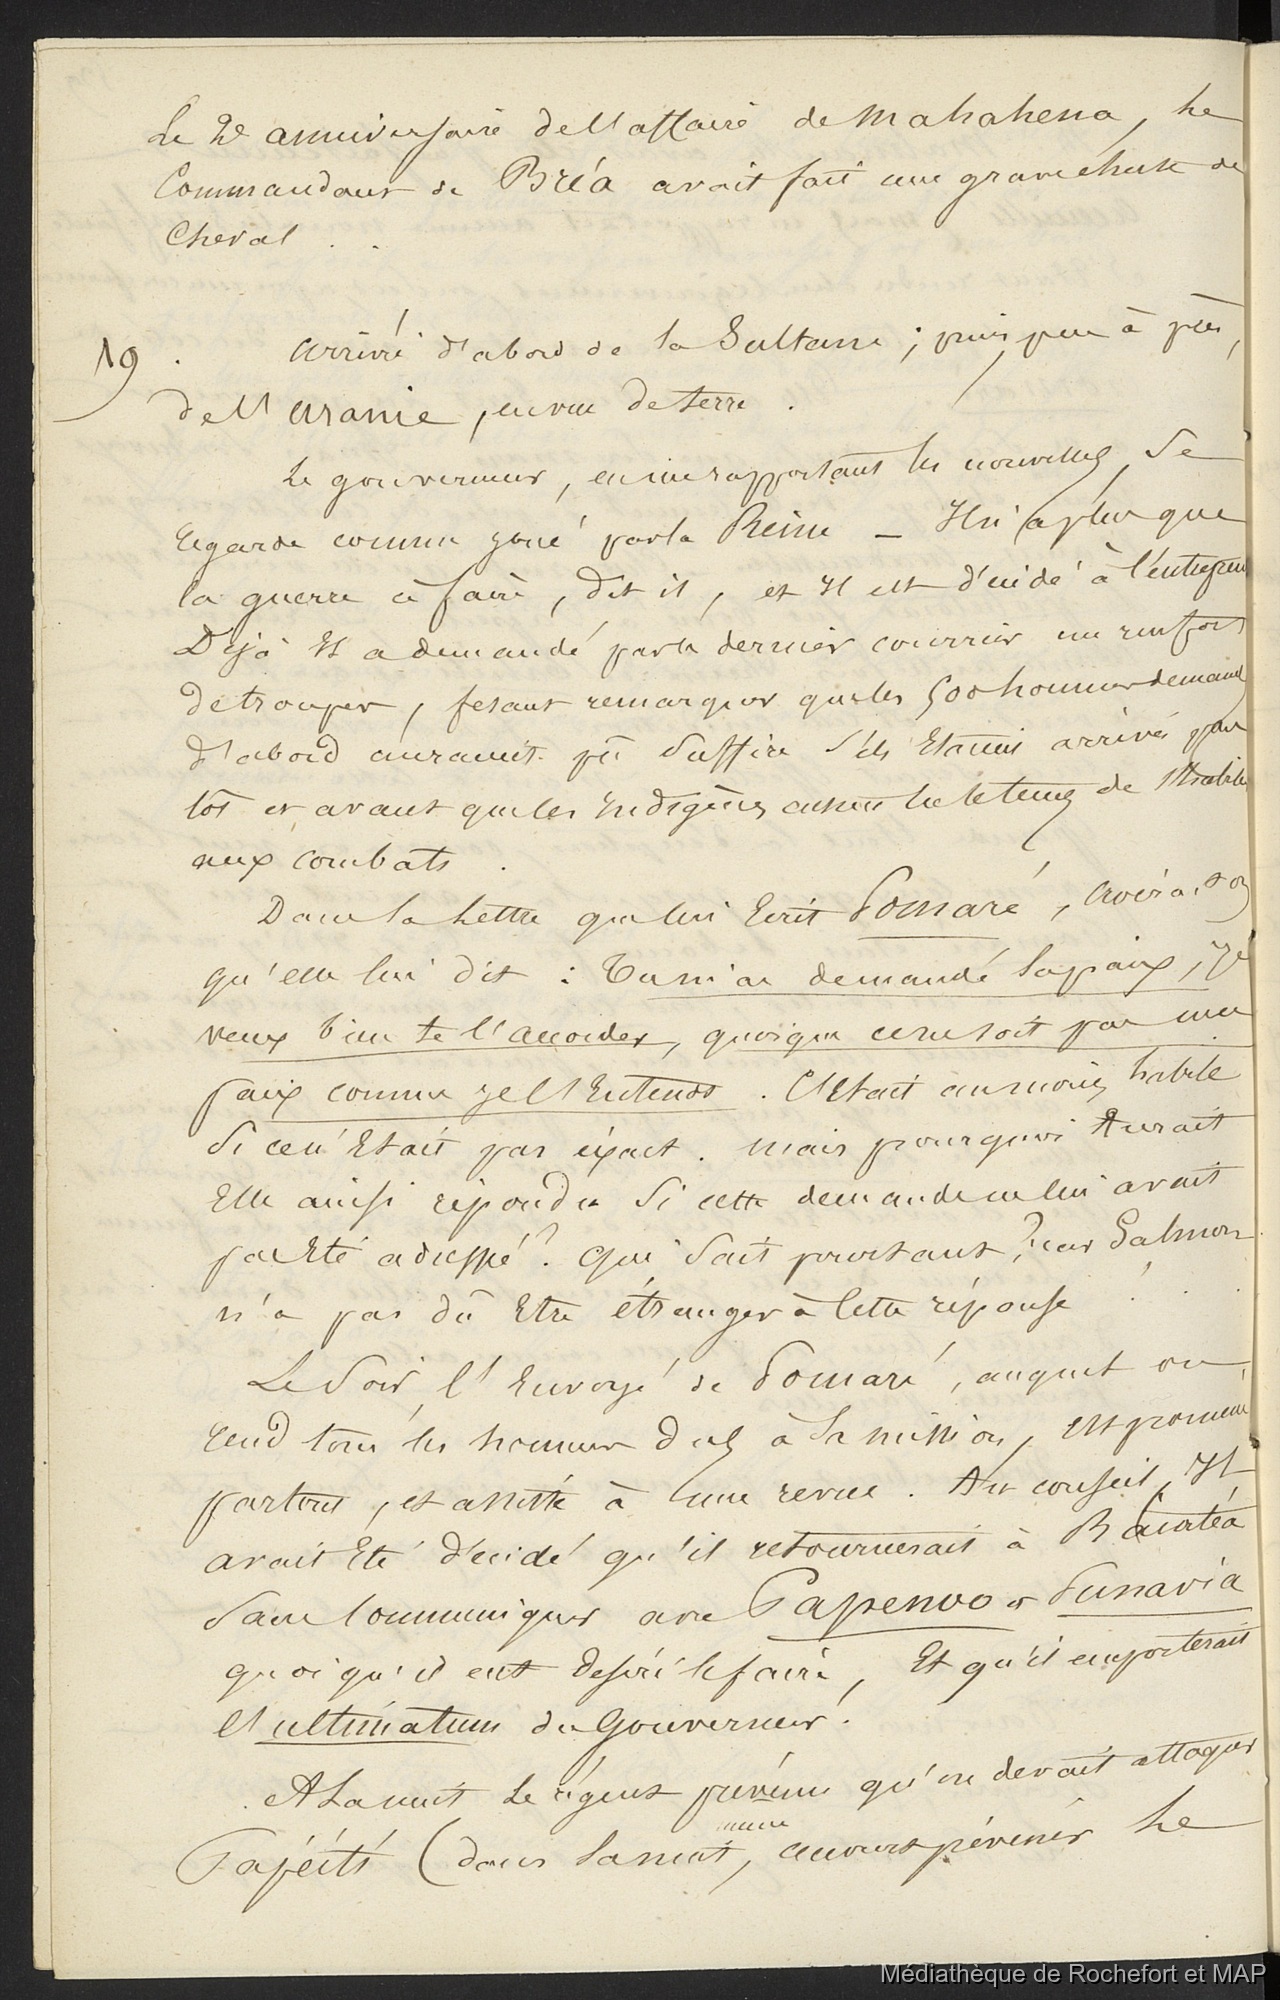 Le 2e anniversaire de l'affaire de Mahahena, Le
Commandant de Bréa avait fait une grave chute de
Cheval . .
19 . Arrivée d'abord de la Sultane ; puis peu à près,
de l'Uranie, en vue de terre .
Le gouverneur, en me rapportant les nouvelles, Se
regarde comme joué par la Reine — Il n'y a plus que
la guerre à faire, dit il, et Il est décidé à l'entrepren
Déjà Il a demandé par le dernier courrier un renfort
de troupes, fesant remarquer que les 500 hommes demand
d'abord auraient pû Suffire S'ils Etaient arrivés plus
tôt et avant que les Indigènes eussent eu le tems de s'habituer
aux combats .
Dans la Lettre que lui Ecrit Pomaré, croirait on
qu'elle lui dit : Tu m'as demandé la paix, je
veux bien te l'accorder, quoique ce ne soit pas une
paix comme je l'Entends . C'Etait au moins habile
Si ce n'Etait pas exact . Mais pourquoi Aurait
Elle ainsi répondu Si cette demande ne lui avait
pas Eté adressée ? Qui Sait pourtant ? car Salmon
n'a pas dû Etre étranger à cette réponse . . .
Le Soir, l'Envoyé de Pomaré, auquel on
rend tous les honneurs dus à Sa mission, est promené
partout, et assiste à une revue . Au conseil, Il
avait Eté décidé qu'il retournerait à Raiatéa
Sans Communiquer avec Papenoo et Punavia
quoiqu'il eut desiré le faire, Et qu'il emporterait
l'ultimatum du Gouverneur .
A La nuit Le régent prévenu qu'on devait attaquer
Papéiti (dans La nuit, même
accourt prévenir Le
Médiathèque de Rochefort et MAP